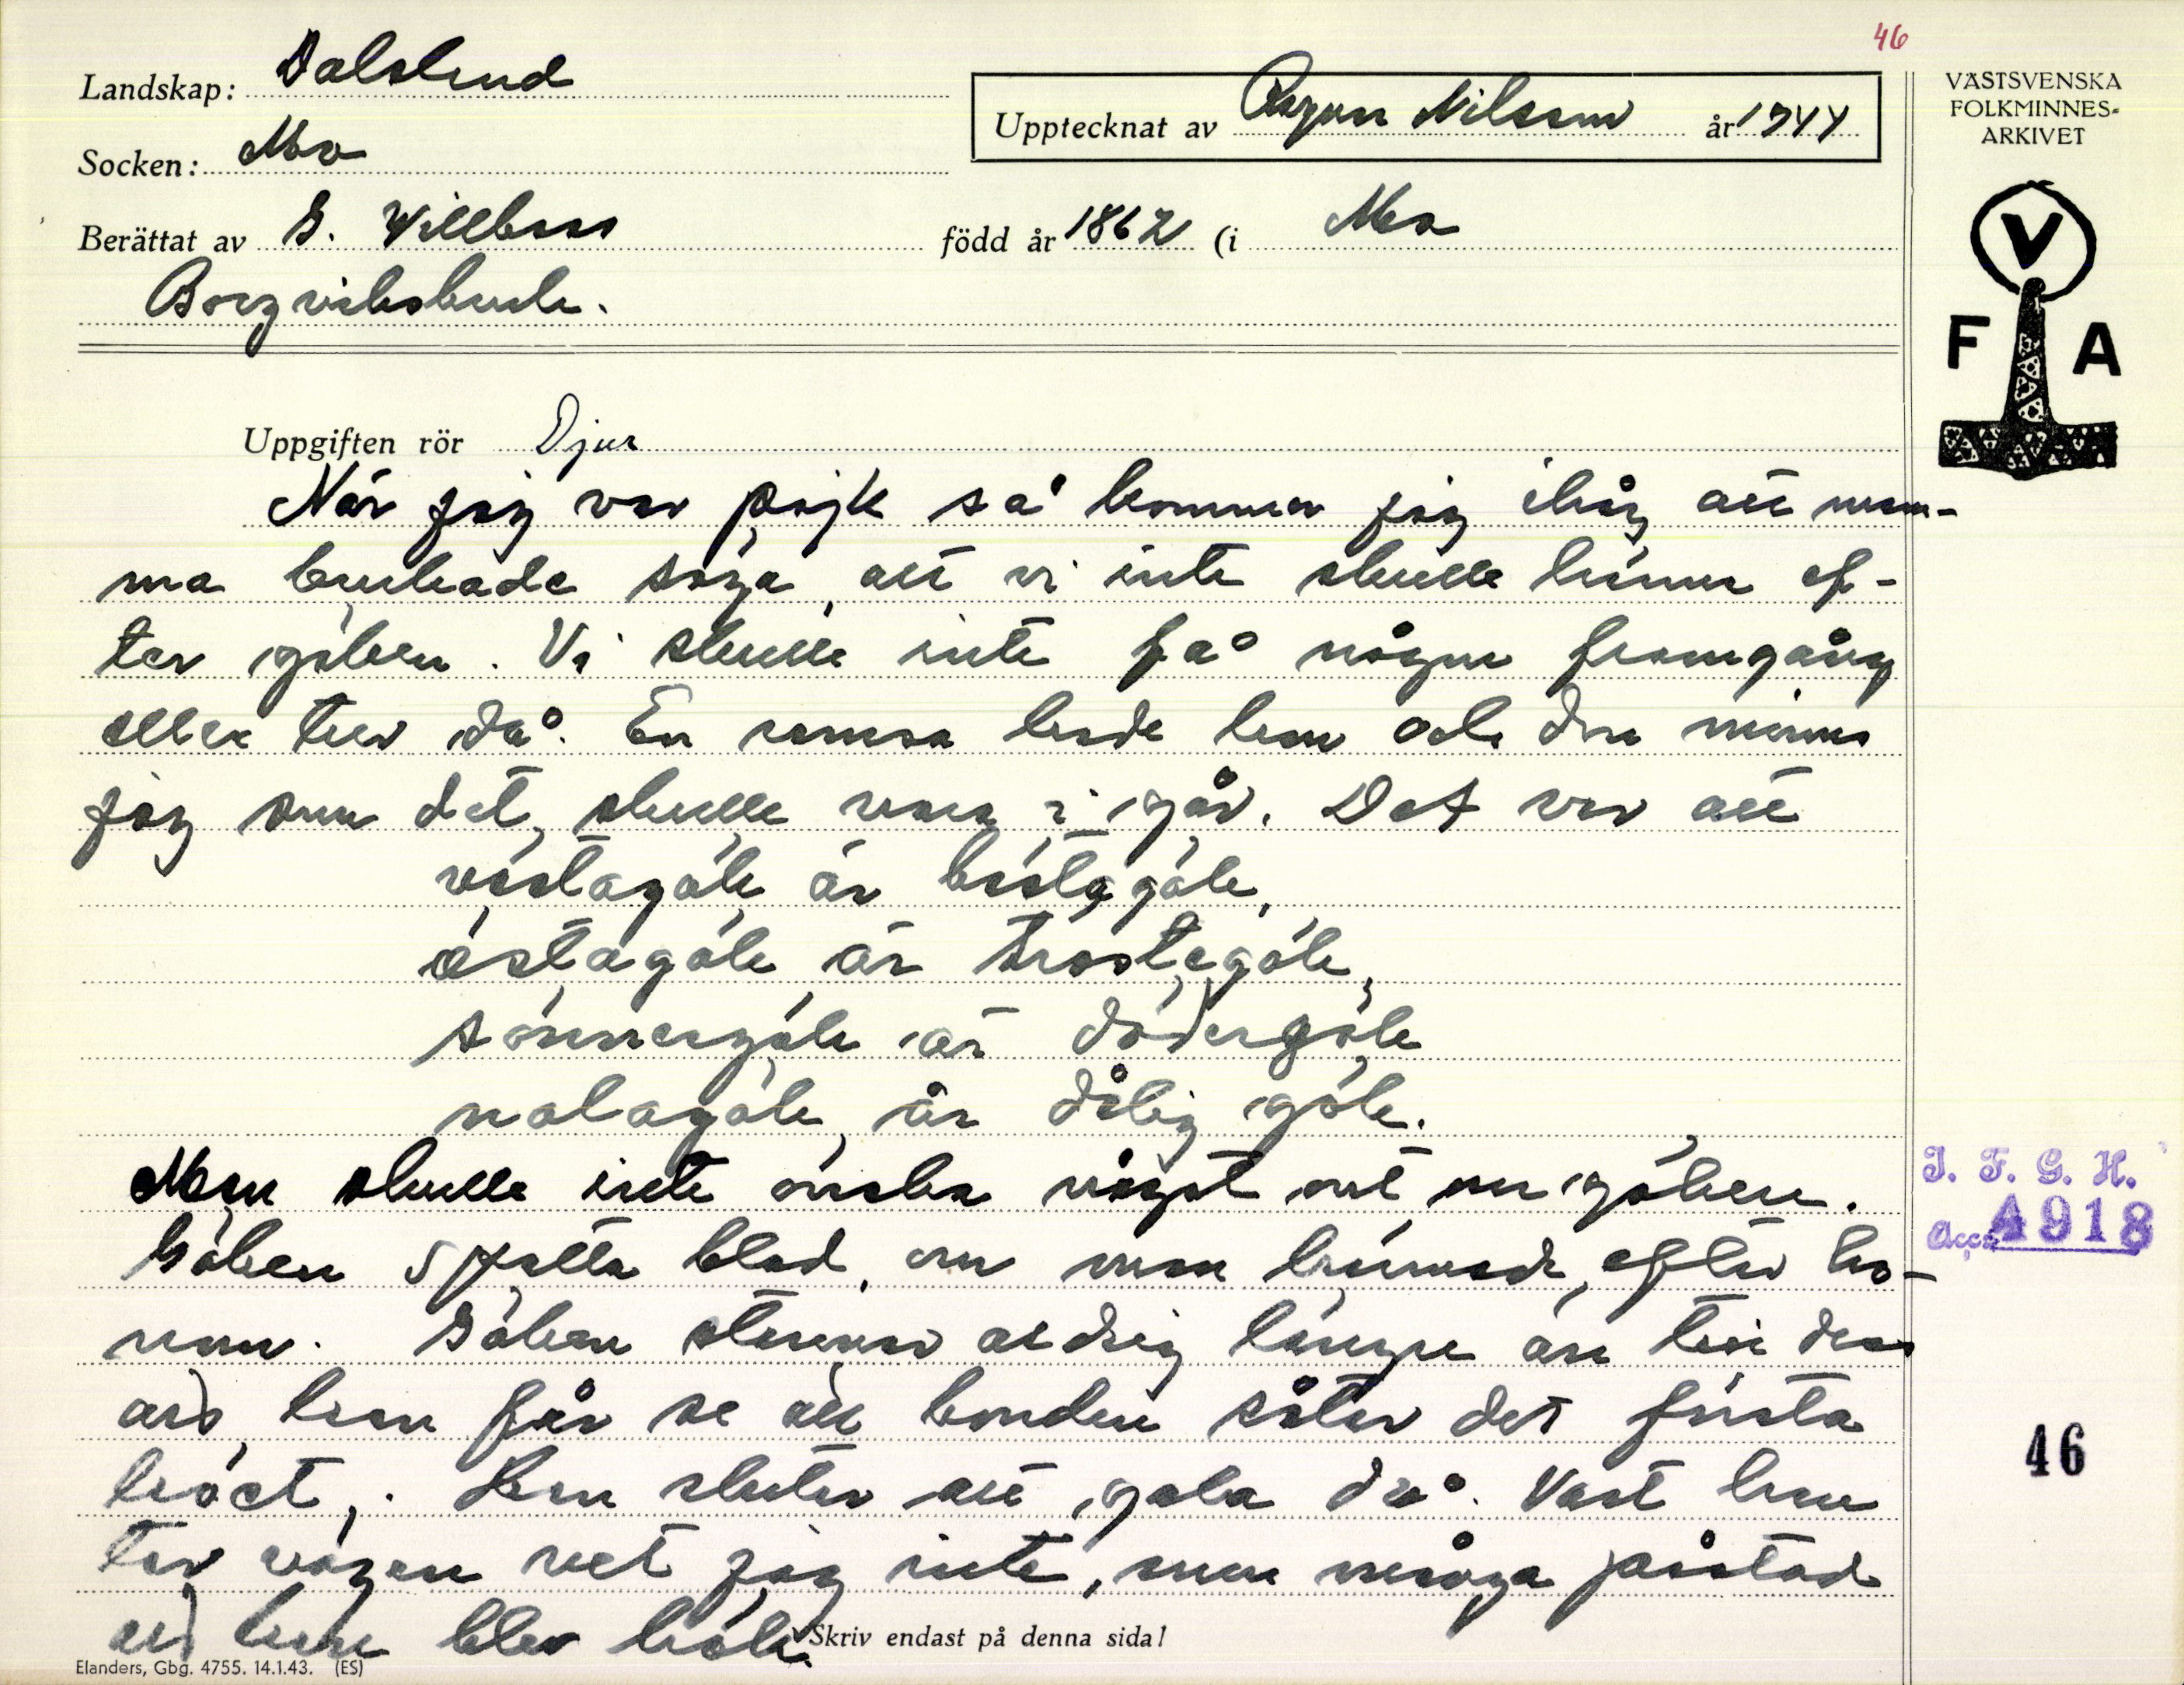 46
Landskap: Dalsland
Socken: Mo
Upptecknat av Ragnar Nilsson år 1944
VÄSTSVENSKA
FOLKMINNES-
ARKIVET
Berättat av G. Willbas född år 1862 (i Mo
Borgviksbruk.
V
F A
Uppgiften rör Djur
När jag var pojk så kommer jag ihåg att mam-
ma brukade säga, att vi inte skulle härma ef-
ter göken. Vi skulle inte få någon framgång
eller tur då. En ramsa hade hon och den minns
jag som det skulle vara i går. Det var att
västagök är bästagök,
östagök är tröstegök,
sönnergök är dödergök
nolagök är dålig gök.
Man skulle inte önska något ont om göken.
Göken spotta blod, om man härmade efter ho-
nom. Göken stannar aldrig längre än till dess
att han får se att bonden såter det första
höet. Han slutar att gala då. Vart han
tar vägen vet jag inte, men många påstod
att han blev hök.
I. F. G. H.
Acc. 4918
46
Skriv endast på denna sida!
Elanders, Gbg. 4755. 14.1.43. (ES)